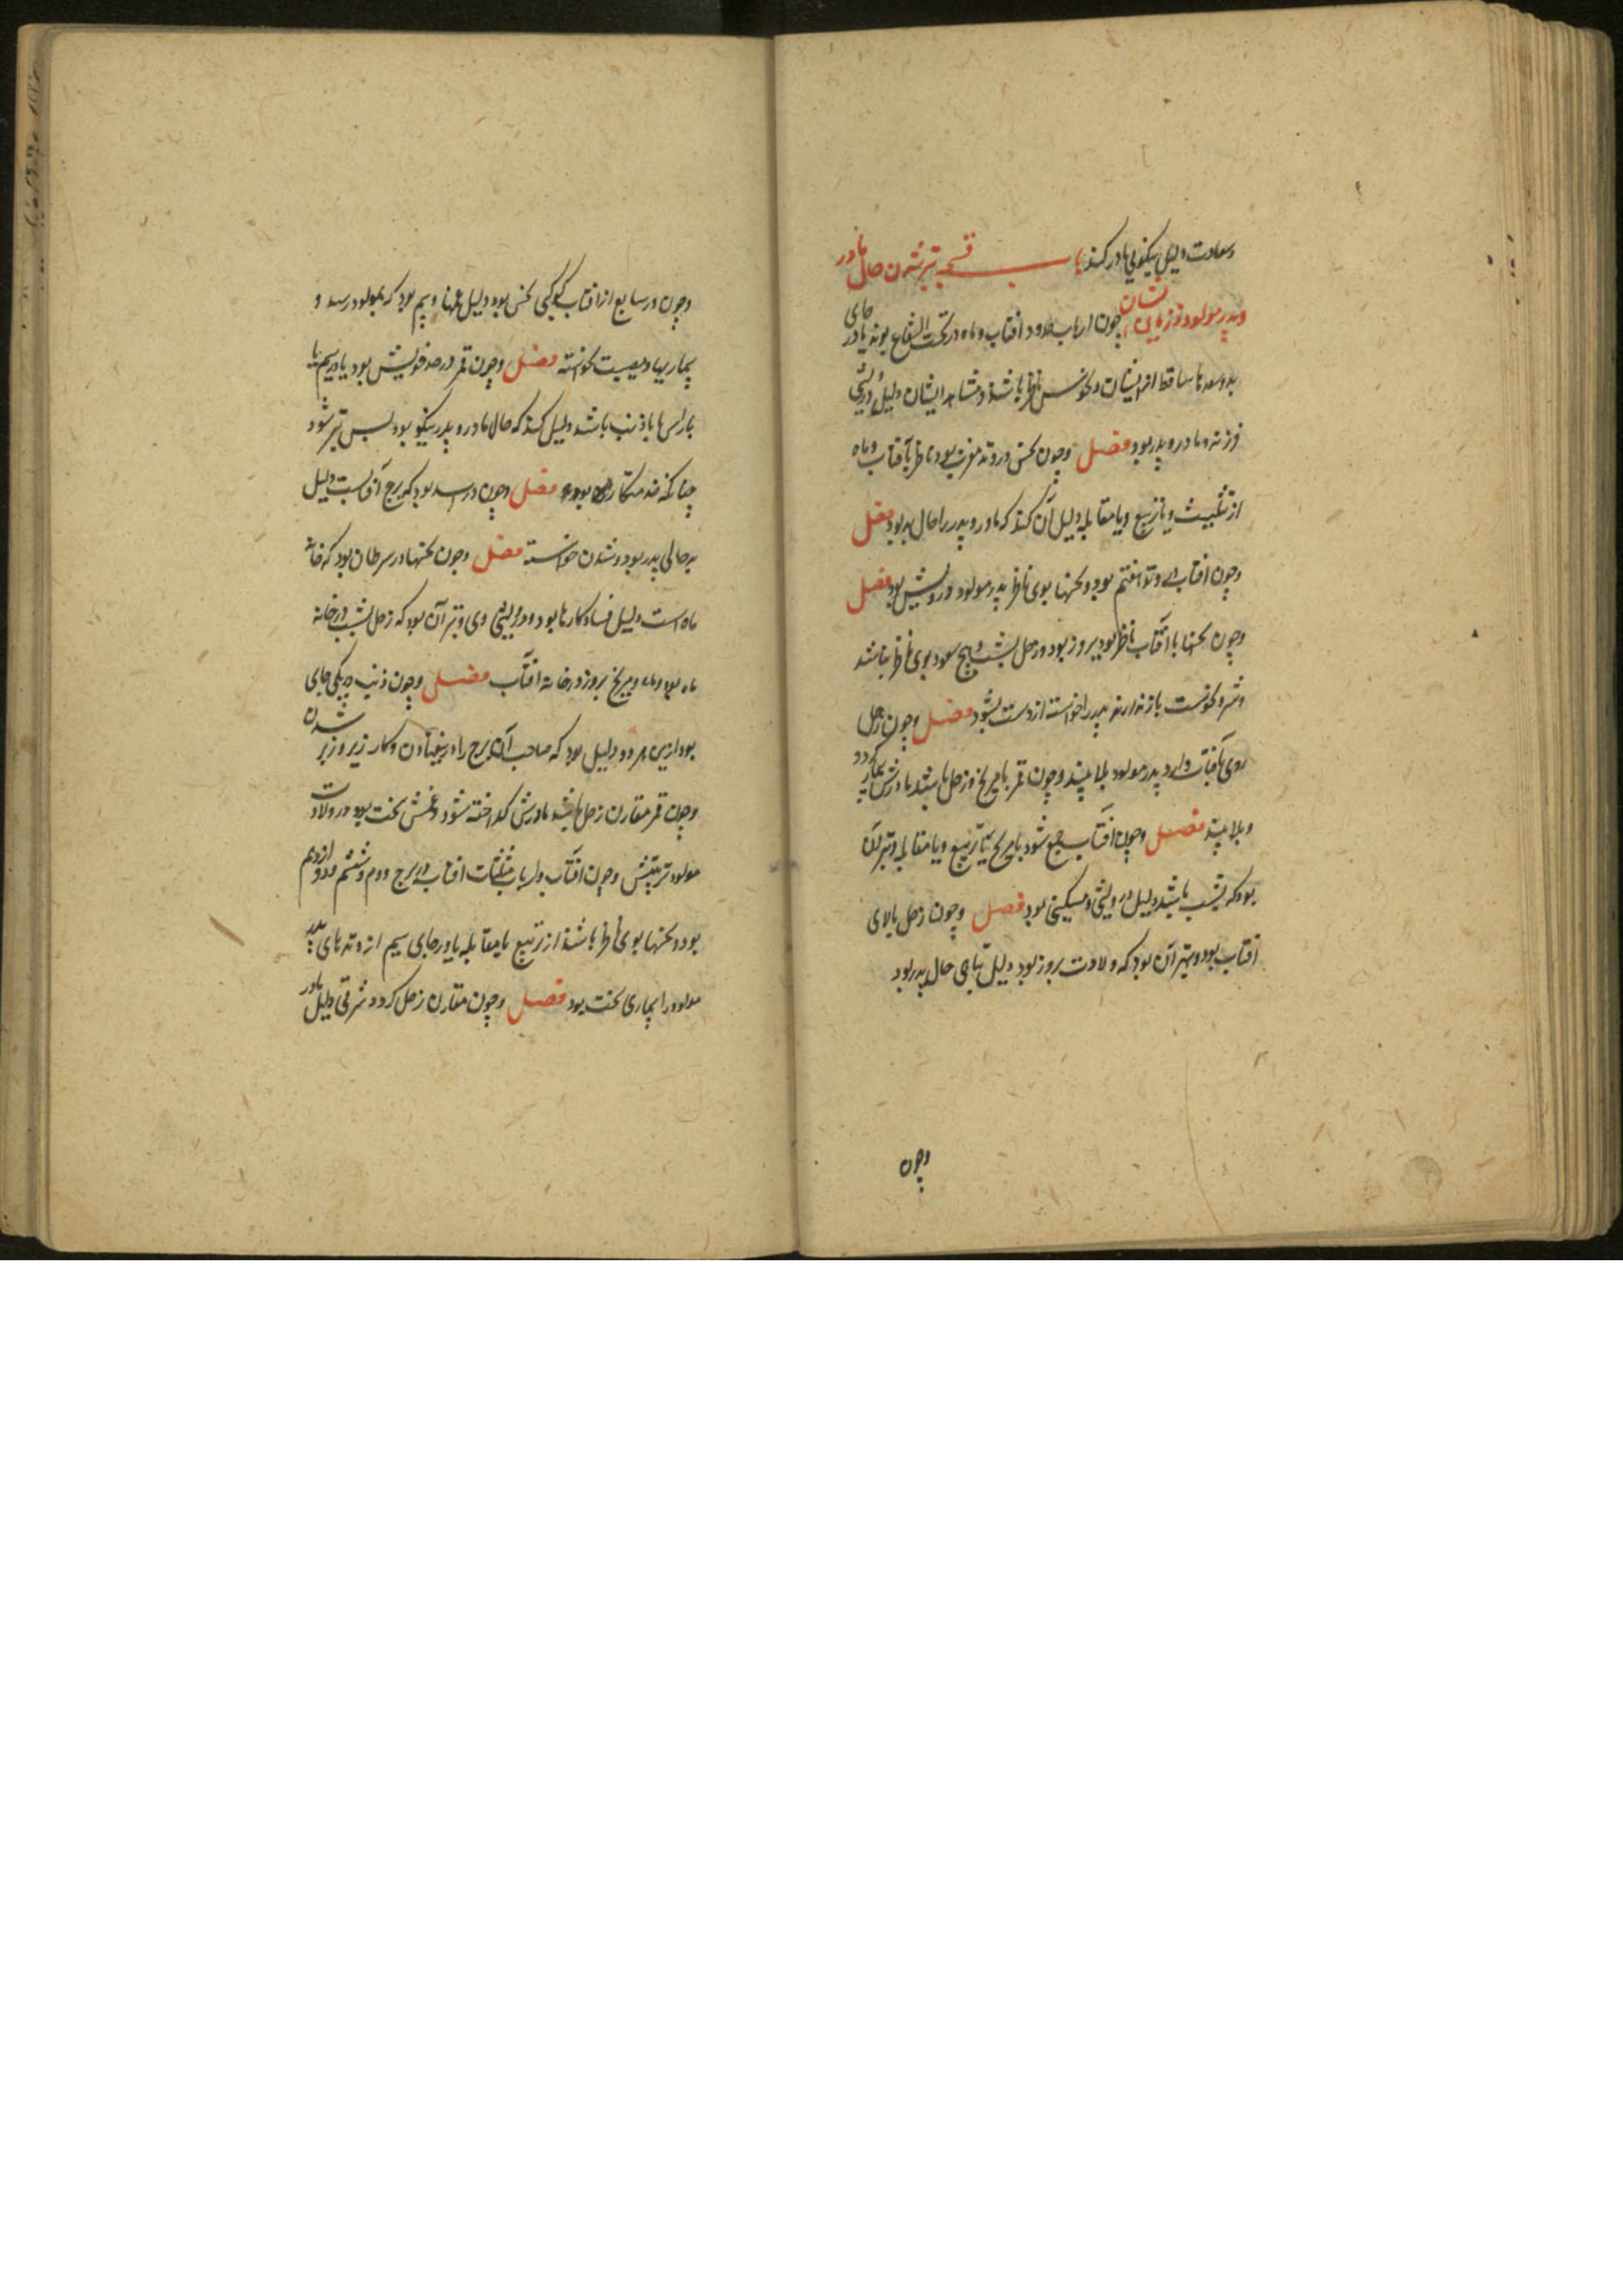 وسعادت دلیل نیکویی مادر کند باب قسم بتر شدن حال مادر
وپدر مولود و زیانی ایشان چون ارباب حدود افتاب و ماه در تحت الشعاع بوند یا در جای
بد و سعدها ساقط از ایشان و نحوس ناظر باشند و مشاهد ایشان دلیل درویشی
فرزند و مادر و پدر بود فصل وچون نحس در وتد مغرب بود ناظر بآفتاب و ماه
از تثلیث و یا تربیع و یا مقابله دلیل آن کند که مادر و پدر را حال بد بود فصل
وچون افتاب در وتد هفتم بود و نحسها بوی ناظر پدر مولود درویش بود فصل
وچون نحسها با آفتاب ناظر بود بروز بود و زحل بشب و هیچ سعود بوی ناظر نباشد
و شر و نحوست باز ندارند پدر را خواسته از دست بشود فصل وچون زحل
روی بآفتاب دارد پدر مولود بلا بیند وچون قمر با مریخ و زحل باشد مادرش بیمار گردد
و بلا بیند فصل وچون آفتاب جمع شود با مریخ یا تربیع و یا مقابله و بتر آن
بود که بشب باشد دلیل درویشی و مسکینی بود فصل وچون زحل بالای
افتاب بود و بهتر آن بود که ولادت بروز بود دلیل تباهی حال پدر بود
وچون
وچون در سابع از افتاب کوکبی نحس بود دلیل غمها و بیم بود که بمولود رسد و
بیماریها و مصیبت بخواسته فصل وچون قمر در حد خویش بود یا در بیتم یا
با راس یا با ذنب باشد دلیل کند که حال مادر و پدر نیکو بود پس بتر شود
چنانکه خدمتکار بود فصل وچون در اسد بود که برج آفتابست دلیل
بدحالی پدر بود و شدن خواسته فصل وچون نحسها در سرطان بود که خانه
ماه است دلیل فساد کارها بود و درویشی وی و بتر آن بود که زحل بشب در خانه
ماه بود و مریخ بروز در خانه افتاب فصل وچون ذنب در یکی جای
بود ازین هر دو دلیل بود که صاحب آن برج را در بیفتادن و کار زیر و زبر شدن
وچون قمر مقارن زحل باشد مادرش گداخته شود و غمش سخت بود در ولادت
مولود تربیتش وچون آفتاب و ارباب مثلثات افتاب در برج دوم و ششم و دوازدهم
بود و نحسها بوی ناظر باشند از تربیع یا مقابله یا در جای سیم از وتدهای پدر
مولود را بیماری سخت بود فصل وچون مقارن زحل گردد شرقی دلیل مادر